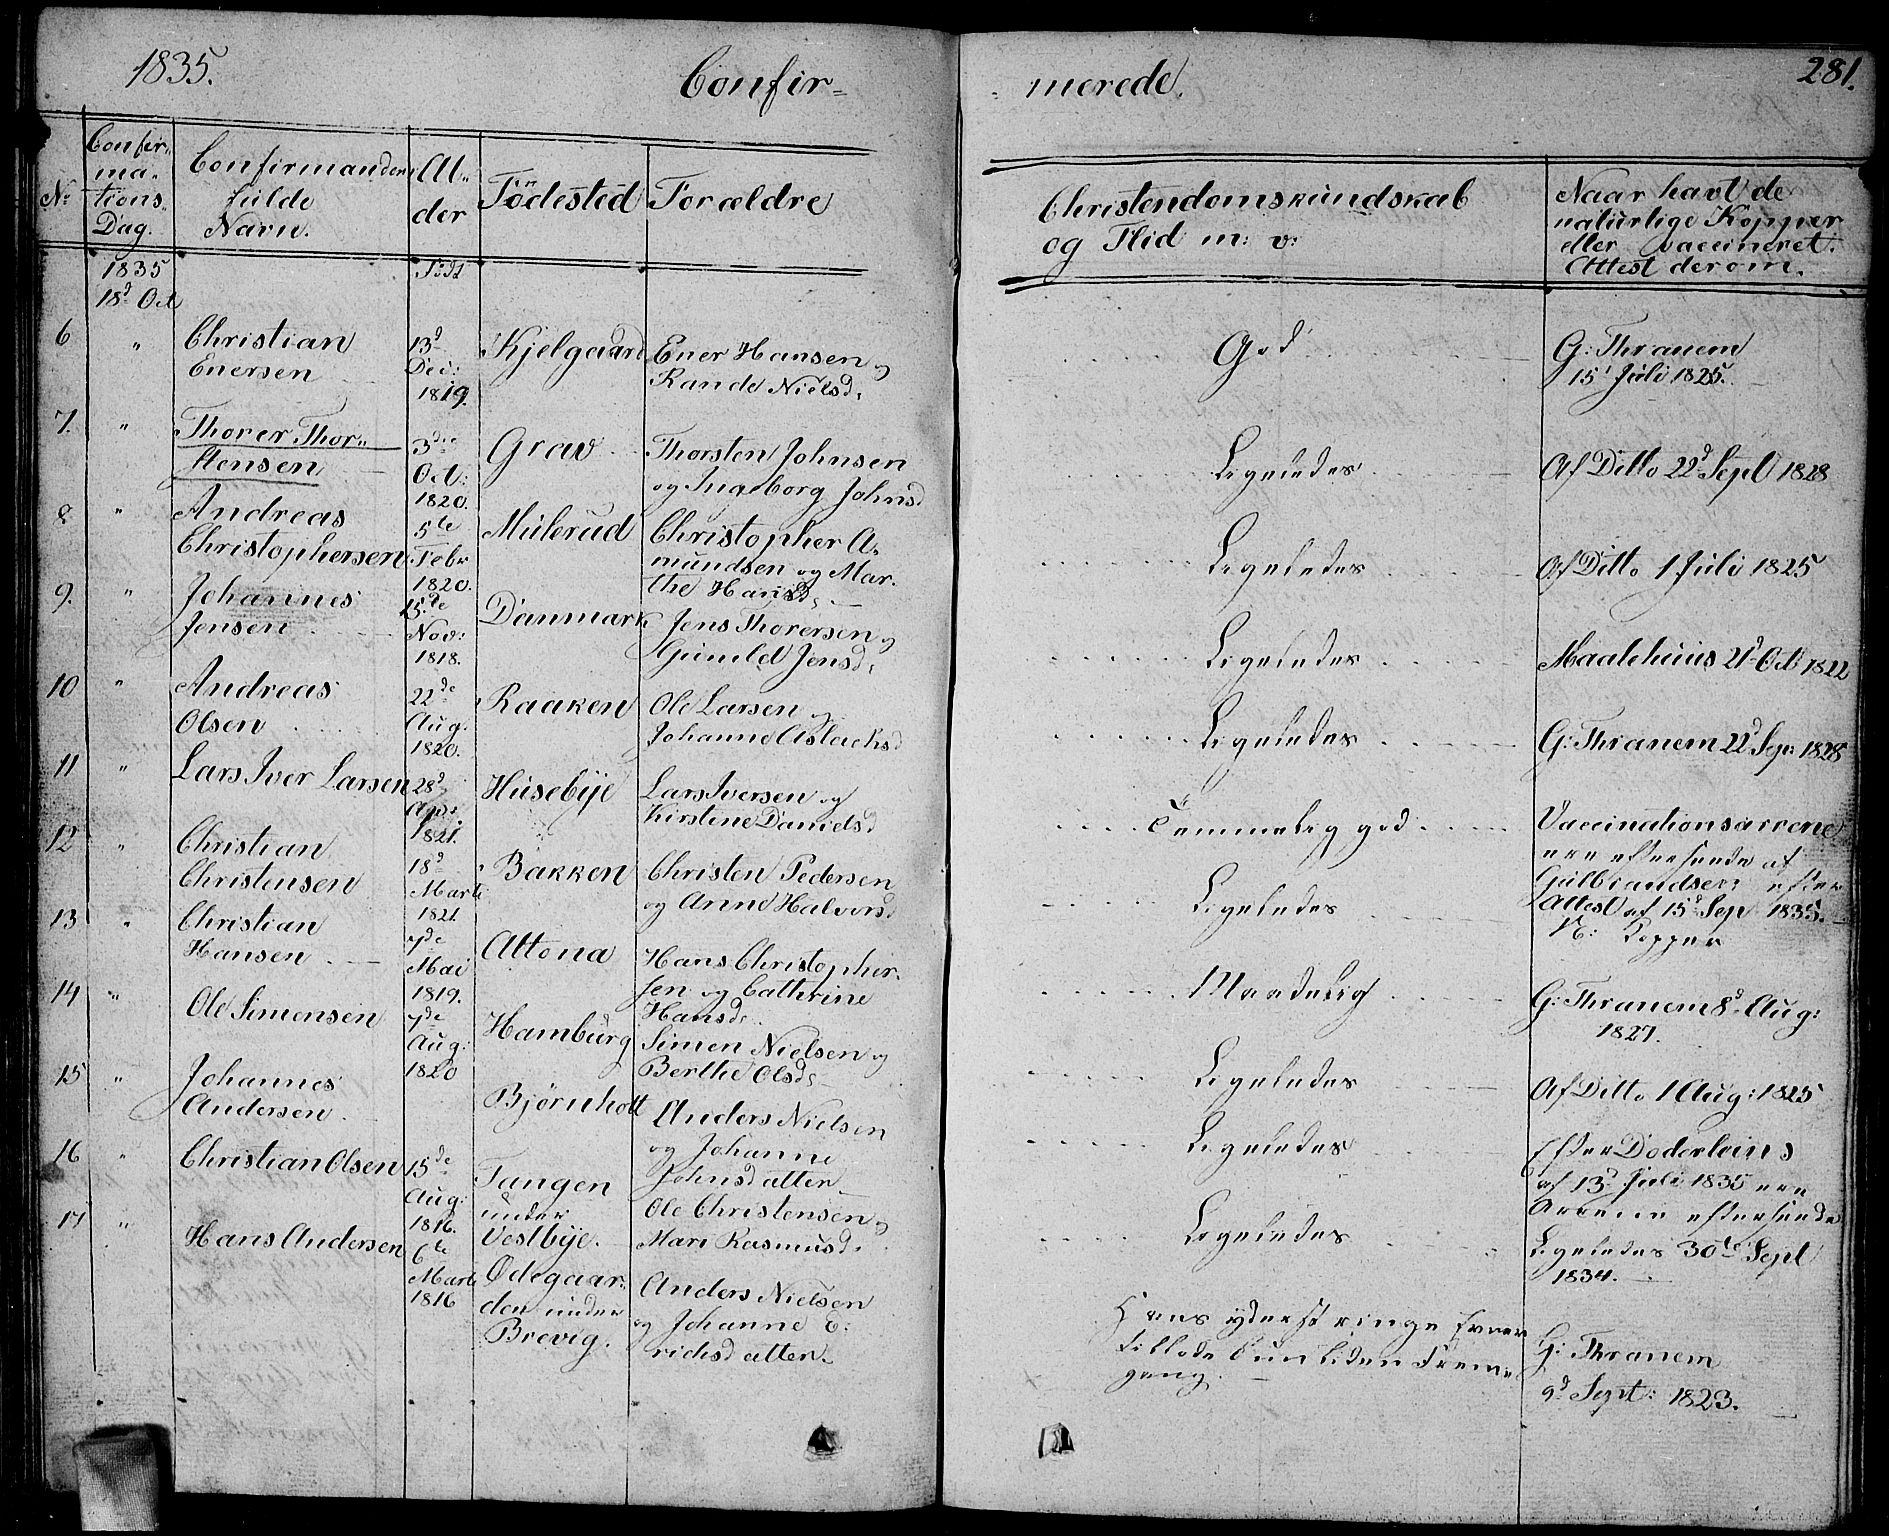 1835.
Confir-
merede.
281.
No
Confir-
ma-
tions-
Dag.
Confirmandens
fulde
Navn.
Al-
der
Födested
Forældre
Christendomskundskab
og Flid m: v:
Naar havt de
naturlige Kopper
eller vaccineret.
Attest derom.
1835
18d Oct
Födt
6 " Christian
Enersen
13d
Dec:
1819.
Kjelgaard
Ener Hansen og
Rande Nielsd.
God
G: Thranem
15 Juli 1825.
7. " Thorer Thor-
stensen
3die
Oct:
1820.
Grav
Thorsten Johnsen
og Ingeborg Johnsd
Ligeledes
Af Ditto 22d Sept 1828
8 " Andreas
Christophersen
5te
Febr
1820.
Mülerud
Christopher A-
mundsen og Mar-
the Hansd.
Ligeledes
Af Ditto 1 Juli 1825
9. " Johannes
Jensen
15de
Nov:
1818.
Danmark
Jens Thorersen og
Gunild Jensd.
Ligeledes
Maalehuus 21d Oct 1822
10 " Andreas
Olsen
22de
Aug.
1820.
Raaken
Ole Larsen og
Johanne Aslacksd
Ligeledes
G: Thranem 22d Sep: 1828
11 " Lars Iver Larsen
28d
Apr:
1821.
Husebije
Lars Iversen og
Kirstine Danielsd
Temmelig god
Vaccinationsarrene
ere efterseede af
Gulbrandsen efter
Attest af 15d Sep 1835.
12 " Christian
Christensen
18d
Marti
1821.
Bakken
Christen Pedersen
og Anne Halvorsd
Ligeledes
N: Kopper
13 " Christian
Hansen
7de
Mai
1819.
Altona
Hans Christopher-
sen og Cathrine
Hansd.
Maadelig
G: Thranem 8d Aug:
1827.
14 " Ole Simensen
7de
Aug:
1820
Hamburg
Simen Nielsen og
Berthe Olsd.
Ligeledes
Af Ditto 1 Aug: 1825
15 " Johannes
Andersen
Björnholt
Anders Nielsen
og Johanne
Johnsdatter
Ligeledes
Efter Döderleins
af 13d Juli 1835 ere
Arrene efterseede
16 " Christian Olsen
15de
Aug:
1816.
Tangen
under
Vestbije.
Ole Christensen og
Mari Rasmusd.
Ligeledes
Ligeledes 30te Sept
1834.
17 " Hans Andersen
6te
Marti
1816
Ödegaar-
den under
Brevig.
Anders Nielsen
og Johanne E-
richsdatter.
Hans yderst ringe Evner
tillode kun liden Frem-
gang.
G: Thranem
9d Sept: 1823.